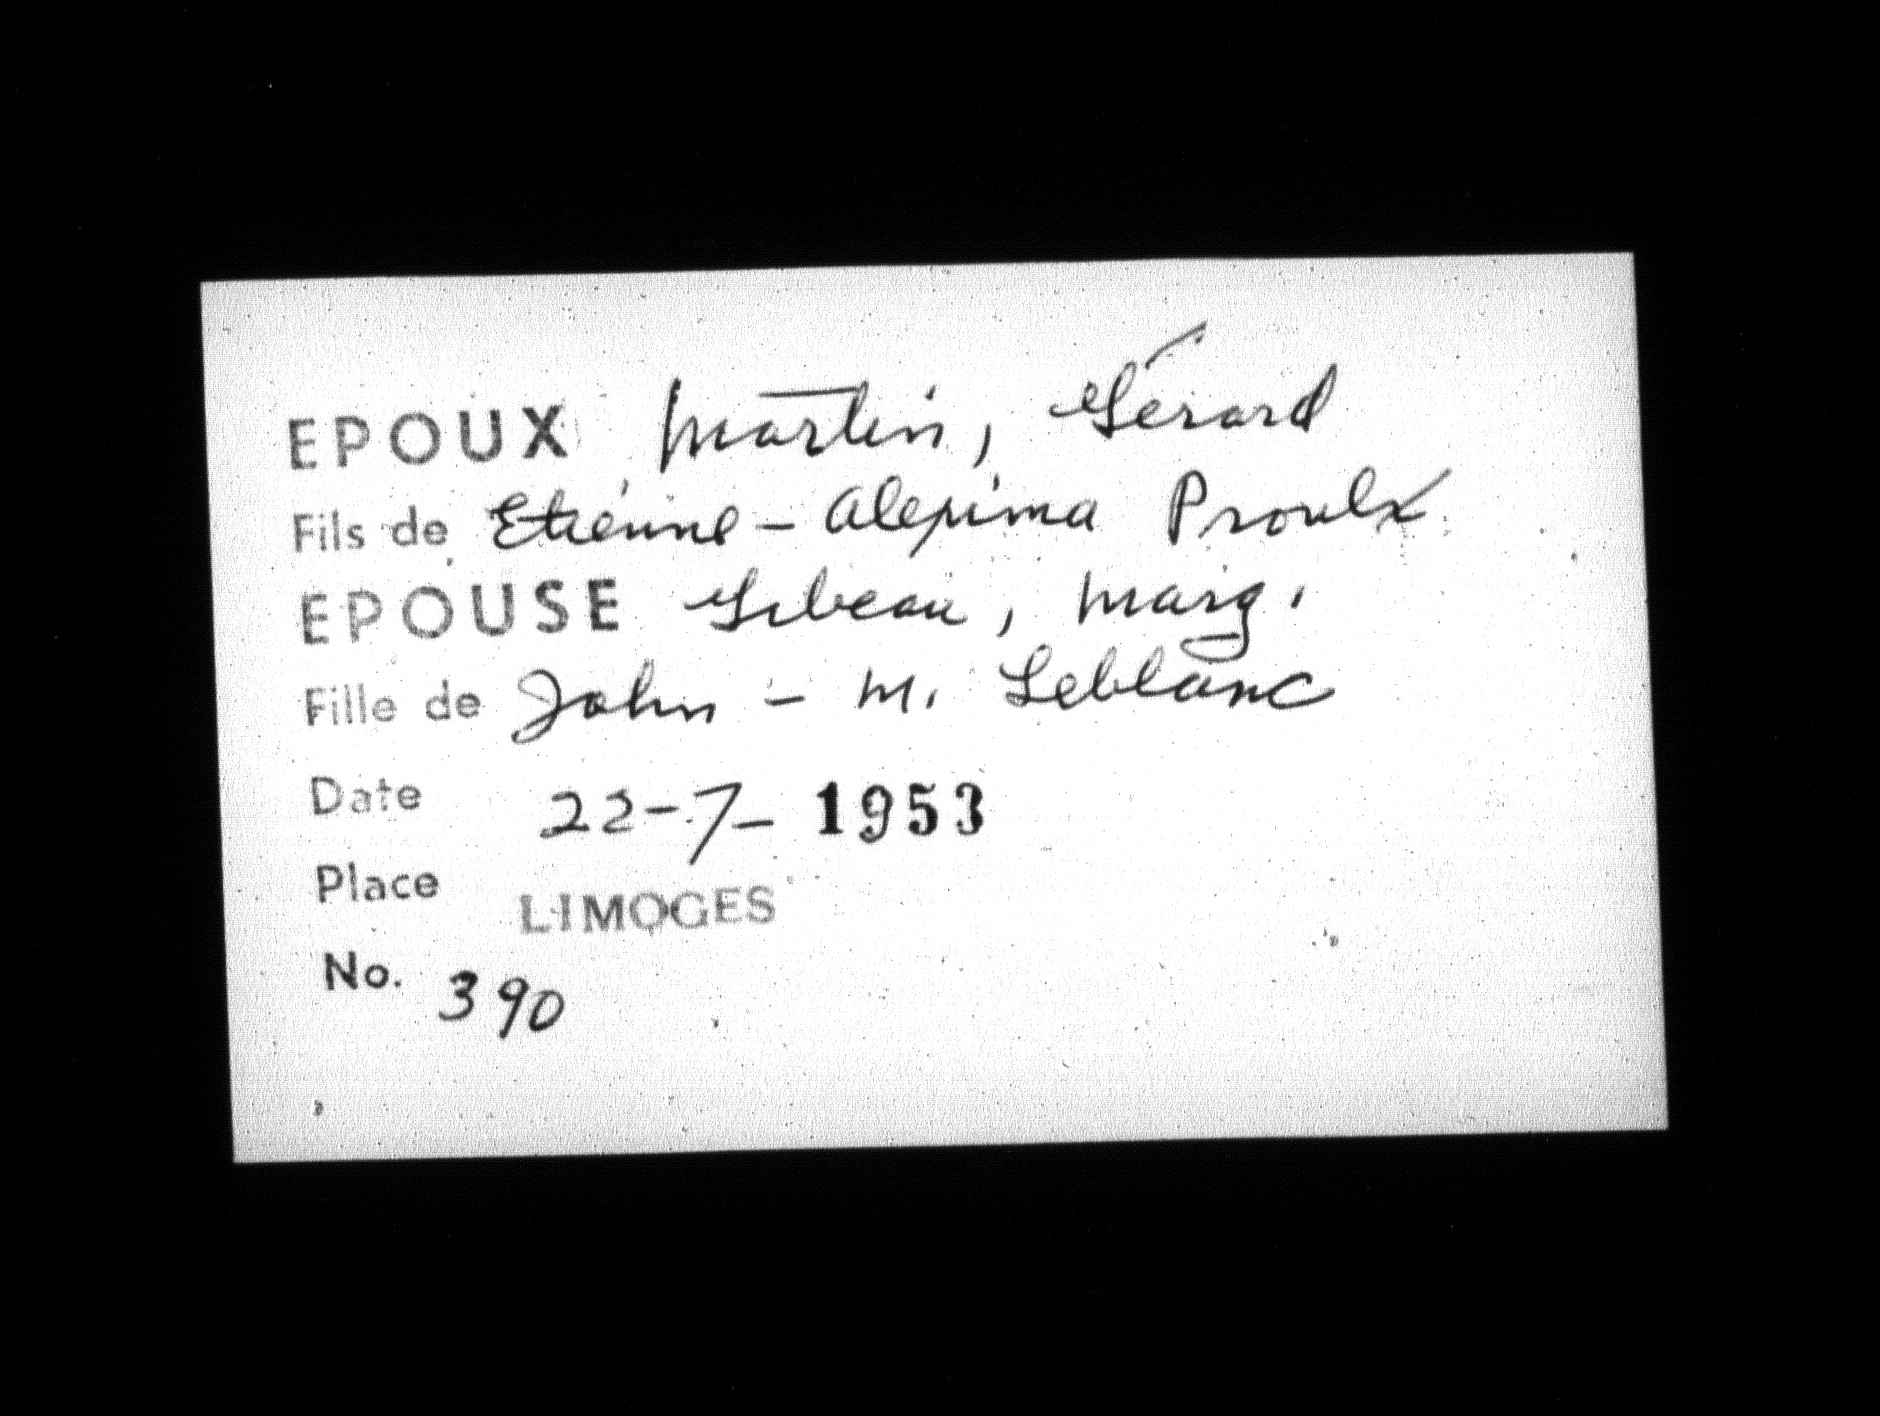 EPOUX Martin, Gérard
Fils de Etienne - Alexina Proulx
EPOUSE Gibeau, Marg.
Fille de John - M. Leblanc
Date 22-7- 1953
Place LIMOGES
No. 390